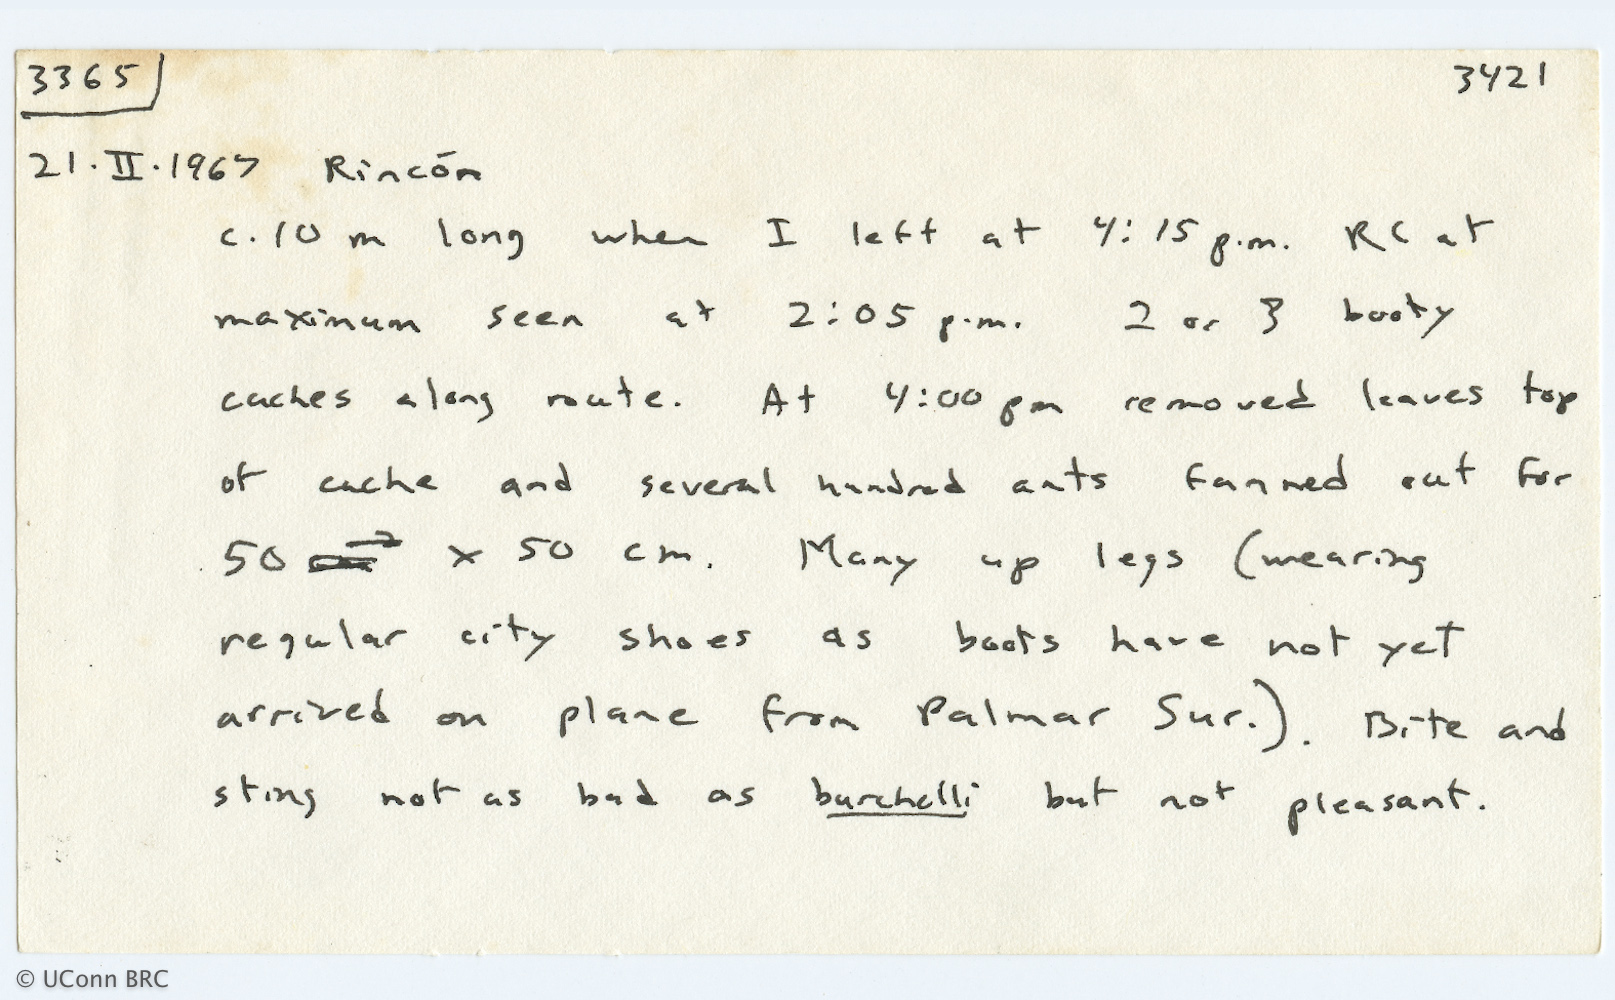 3365 3421
21.II.1967 Rincón
c. 10 m long when I left at 4:15 p.m. RC at
maximum seen at 2:05 p.m. 2 or 3 booty
caches along route. At 4:00 pm removed leaves top
of cache and several hundred ants fanned out for
50 x 50 cm. Many up legs (wearing
regular city shoes as boots have not yet
arrived on plane from Palmar Sur.). Bite and
sting not as bad as burchelli but not pleasant.
© UConn BRC